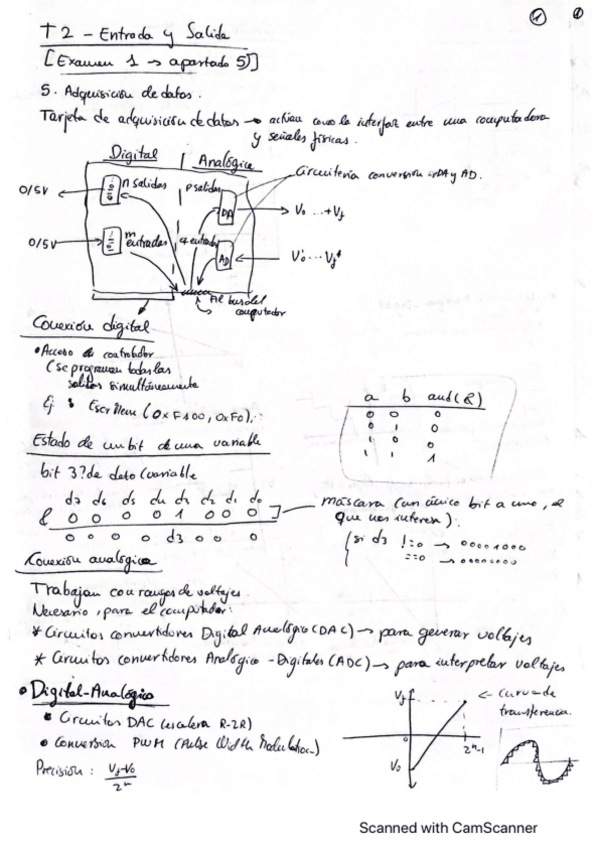 T2 - Entrada y Salida
[Examen 1 → apartado 5)]
5. Adquisición de datos.
Tarjeta de adquisición de datos → actúan como la interfaz entre una computadora
y señales físicas.
Digital | Analógica
0/5V n salidas p salidas DA V₀ ... +Vf
Circuitería conversión DA y AD.
0/5V m entradas q entradas AD V₀' ... Vf'
Al bus del
computador
Conexión digital
• Acceso controlador
(se programan todas las
salidas simultáneamente
Ej: Escribem (0xF100, 0xF0);
a b and (&)
0 0 0
0 1 0
1 0 0
1 1 1
Estado de un bit de una variable
bit 3? de dato (variable
d7 d6 d5 d4 d3 d2 d1 d0
& 0 0 0 0 1 0 0 0
0 0 0 0 d3 0 0 0
máscara (un único bit a uno, el
que nos interesa).
si d3 != 0 → 00001000
== 0 → 00000000
Conexión analógica
Trabajan con rangos de voltajes.
Necesario, para el computador:
* Circuitos convertidores Digital Analógico (DAC) → para generar voltajes
* Circuitos convertidores Analógico - Digitales (ADC) → para interpretar voltajes
• Digital-Analógico
• Circuitos DAC (escalera R-2R)
• Conversión PWM (Pulse Width Modulation)
Precisión: Vf-V₀ / 2ⁿ
Vf ← curva de
transferencia.
0 2ⁿ-1
V₀
Scanned with CamScanner